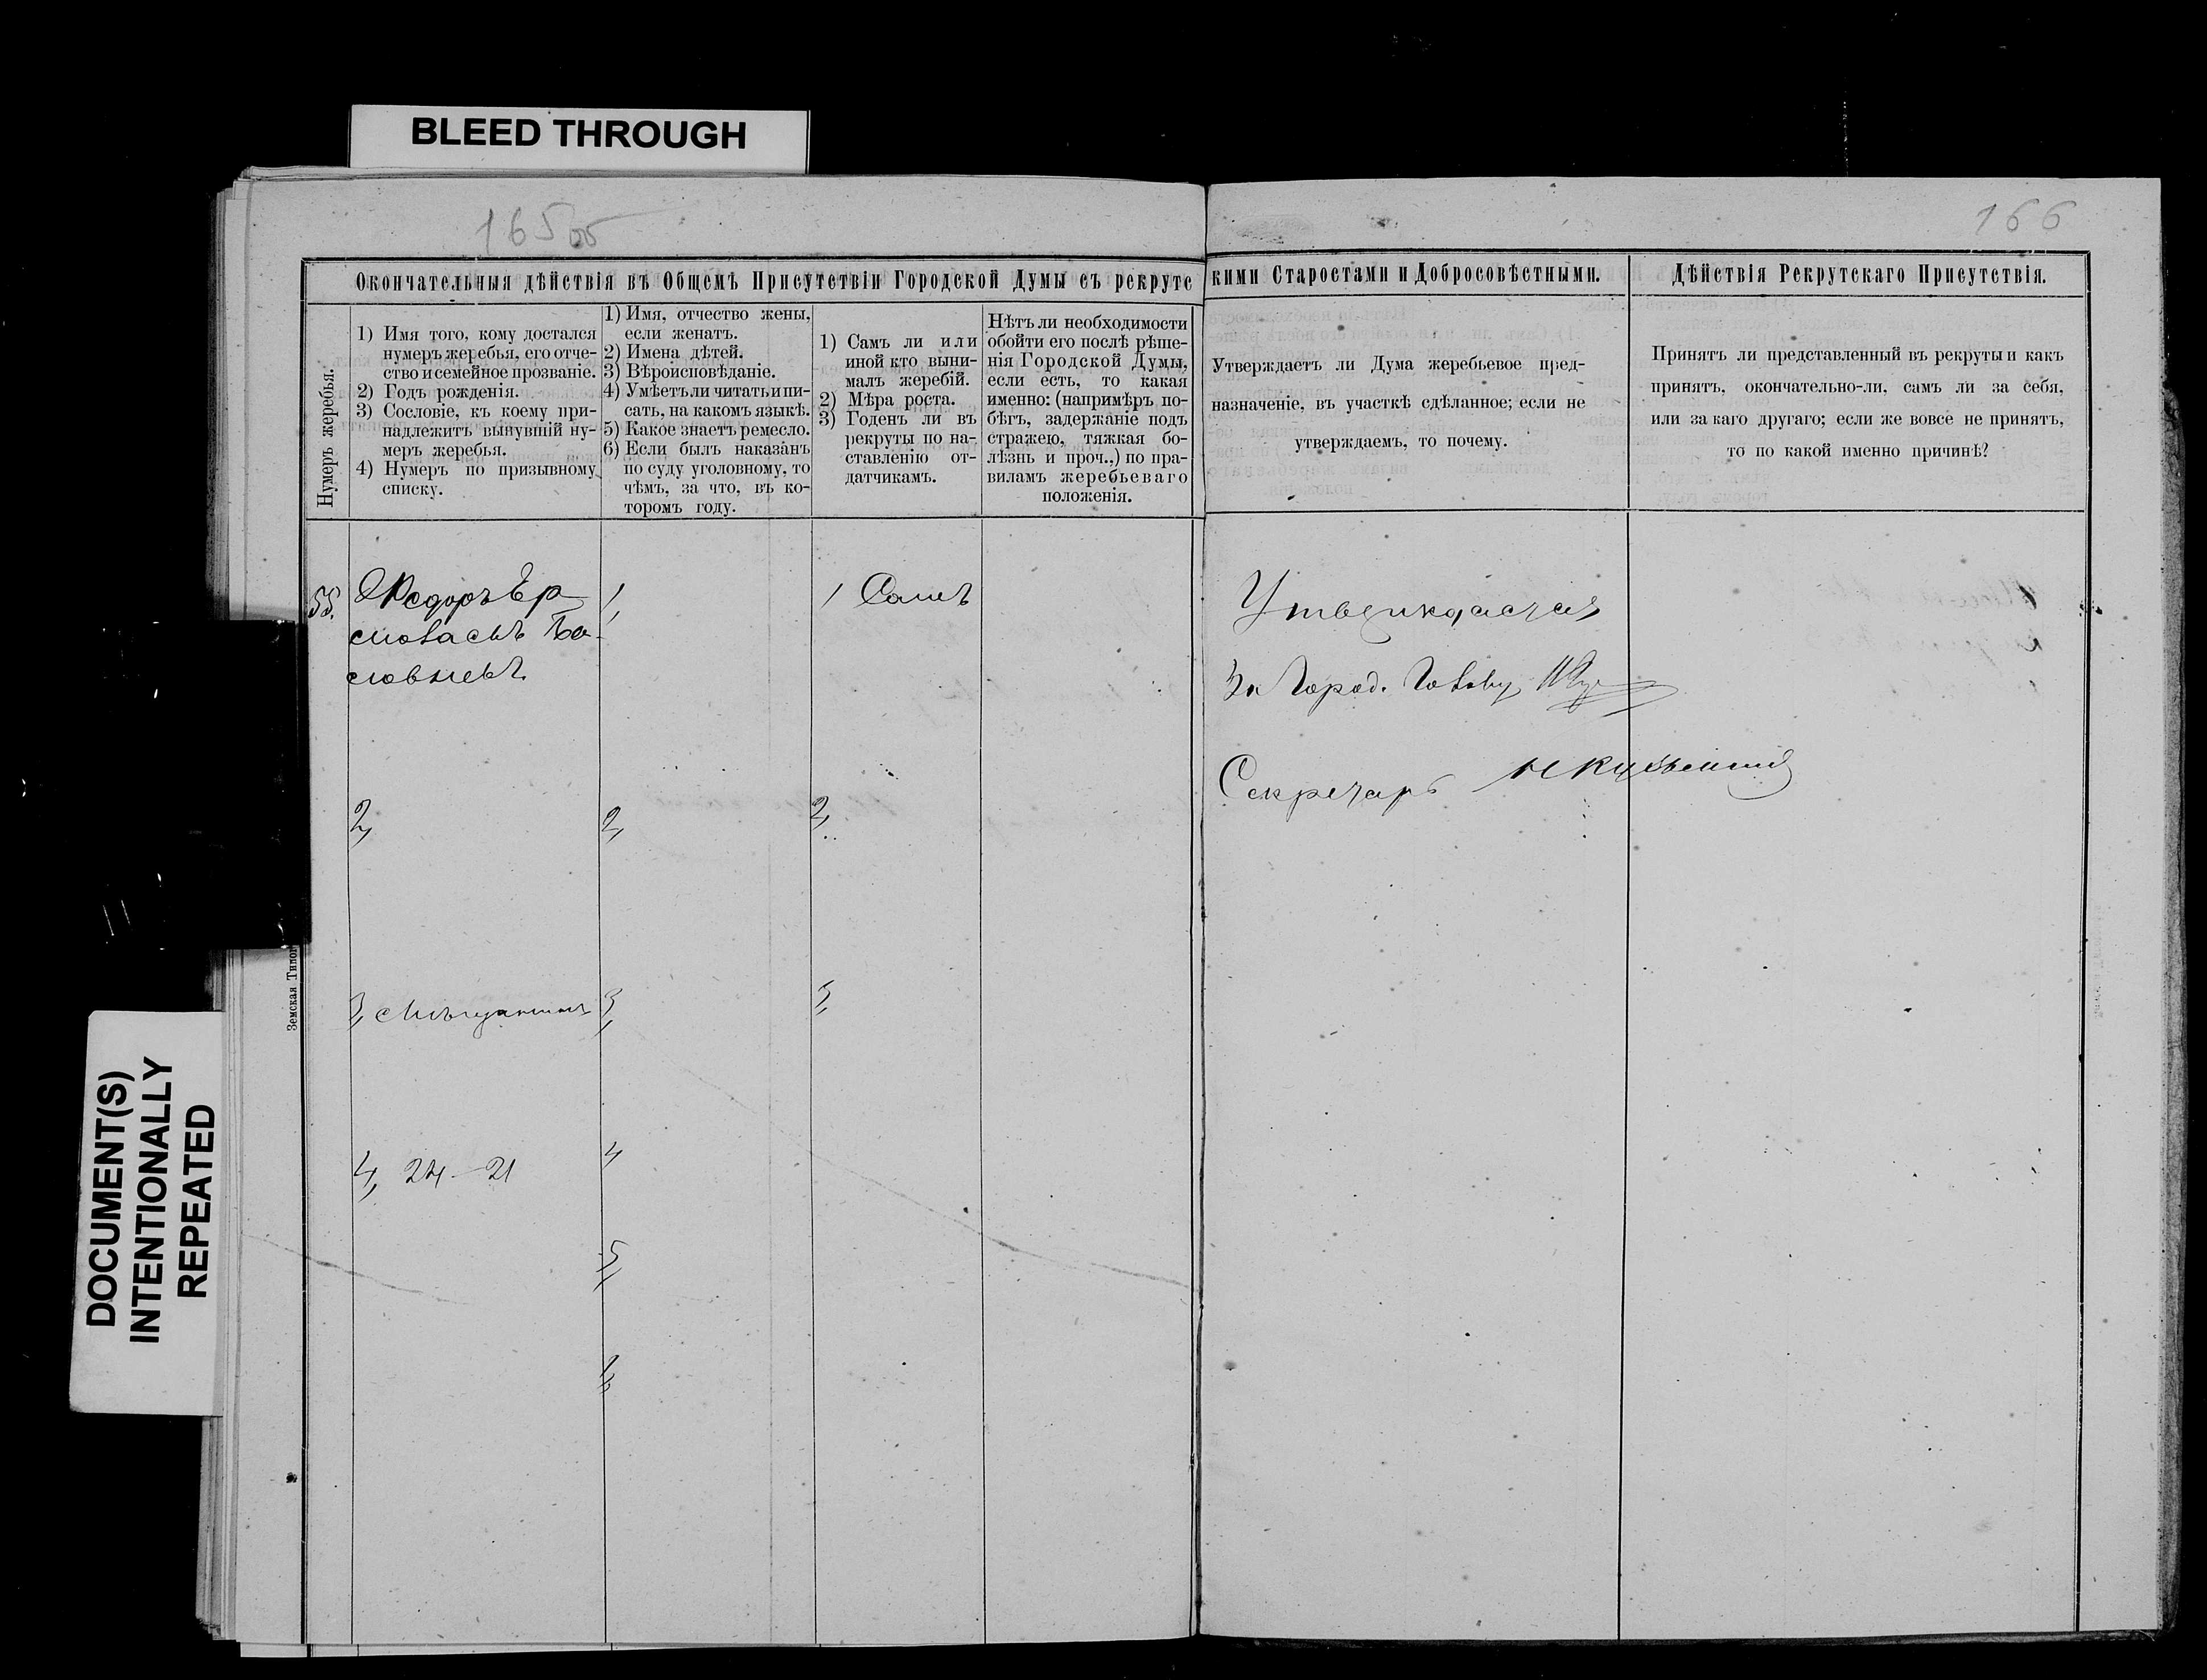 BLEED THROUGH
165 об
166
Окончательныя дѣйствія въ Общемъ Присутствіи Городской Думы съ рекрутс
кими Старостами и Добросовѣстными.
Дѣйствія Рекрутскаго Присутствія.
Нумеръ жеребья.
1) Имя того, кому достался
нумеръ жеребья, его отче-
ство и семейное прозваніе.
2) Годъ рожденія.
3) Сословіе, къ коему при-
надлежитъ вынувшій ну-
меръ жеребья.
4) Нумеръ по призывному
списку.
1) Имя, отчество жены,
если женатъ.
2) Имена дѣтей.
3) Вѣроисповѣданіе.
4) Умѣетъ ли читать и пи-
сать, на какомъ языкѣ.
5) Какое знаетъ ремесло.
6) Если былъ наказанъ
по суду уголовному, то
чѣмъ, за что, въ ко-
торомъ году.
1) Самъ ли или
иной кто выни-
малъ жеребій.
2) Мѣра роста.
3) Годенъ ли въ
рекруты по на-
ставленію от-
датчикамъ.
Нѣтъ ли необходимости
обойти его послѣ рѣше-
нія Городской Думы,
если есть, то какая
именно: (напримѣръ по-
бѣгъ, задержаніе подъ
стражею, тяжкая бо-
лѣзнь и проч.,) по пра-
виламъ жеребьеваго
положенія.
Утверждаетъ ли Дума жеребьевое пред-
назначеніе, въ участкѣ сдѣланное; если не
утверждаемъ, то почему.
Принятъ ли представленный въ рекруты и какъ
принятъ, окончательно-ли, самъ ли за себя,
или за каго другаго; если же вовсе не принятъ,
то по какой именно причинѣ?
55.
Федоръ Ер
2,
3, Мѣщанинъ
4, 24–21
1,
2,
3,
4
5,
6,
1 Самъ
2,
3,
Утверждается
За Город. Голову
Секретарь
Земская Типог
DOCUMENT(S)
INTENTIONALLY
REPEATED